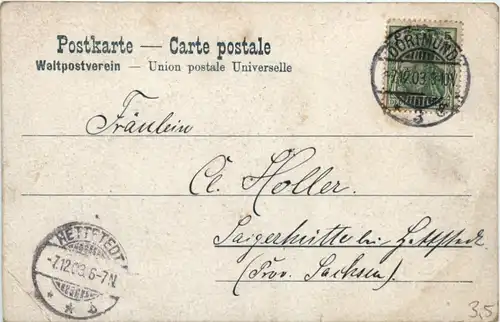 Postkarte — Carte postale
Weltpostverein – Union postale Universelle
DORTMUND
7.12.03.
3
Fräulein
Cl. Holler.
Saigerhütte bei Hettstedt
(Prov. Sachsen)
HETTSTEDT
-7.12.03.6-7N.
* * b
3,5